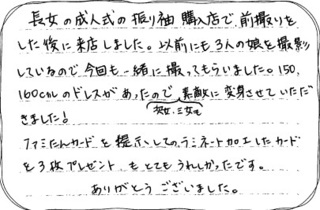 長女の成人式の振り袖 購入店で、前撮りを
した後に来店しました。以前にも3人の娘を撮影
しているので今回も一緒に撮ってもらいました。150,
160cmのドレスがあったので 素敵に変身させていただ
次女・三女も
きました!
ファミたんカードを提示してのラミネート加工したカード
を3枚プレゼント も とてもうれしかったです。
ありがとう ございました。